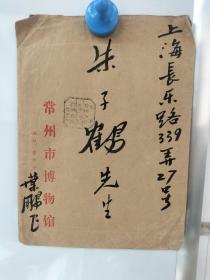 上海長乐路339弄27号
朱子鹤先生
常州市博物馆
葉鹏飞